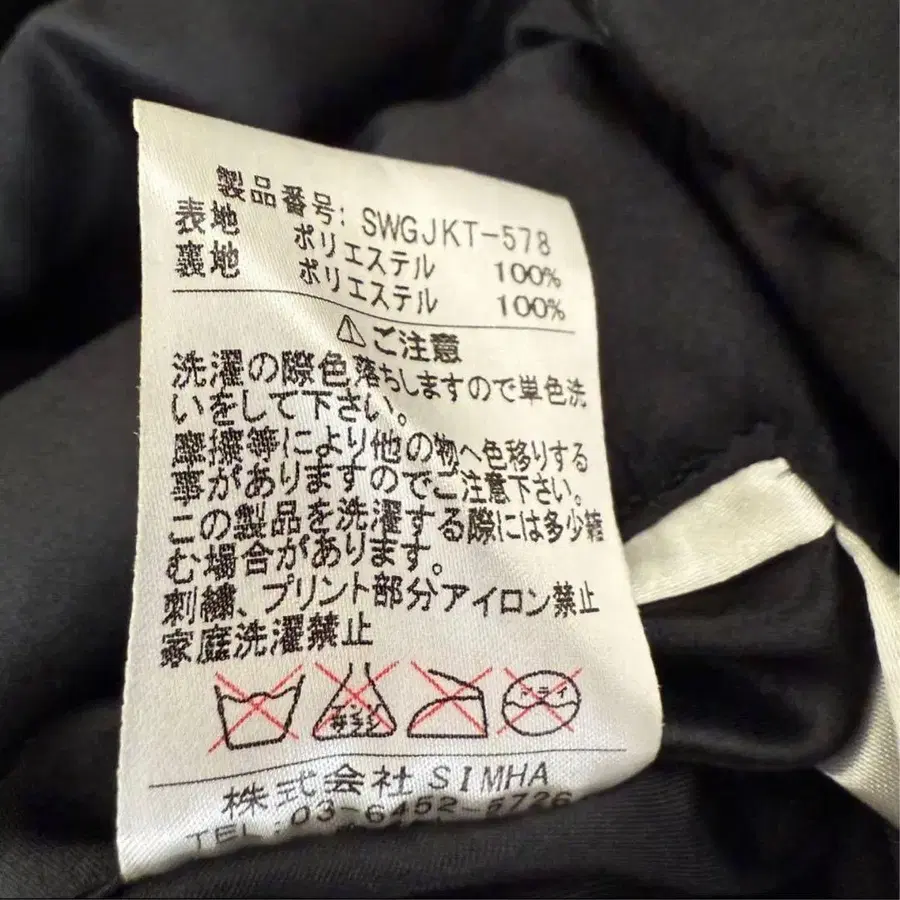 製品番号: SWGJKT-578
表地 ポリエステル 100%
裏地 ポリエステル 100%
⚠ご注意
洗濯の際色落ちしますので単色洗
いをして下さい。
摩擦等により他の物へ色移りする
事がありますのでご注意下さい。
この製品を洗濯する際には多少縮
む場合があります。
刺繍、プリント部分アイロン禁止
家庭洗濯禁止
エンソ サラシ
ドライ
株式会社 SIMHA
TEL: 03-6452-5726